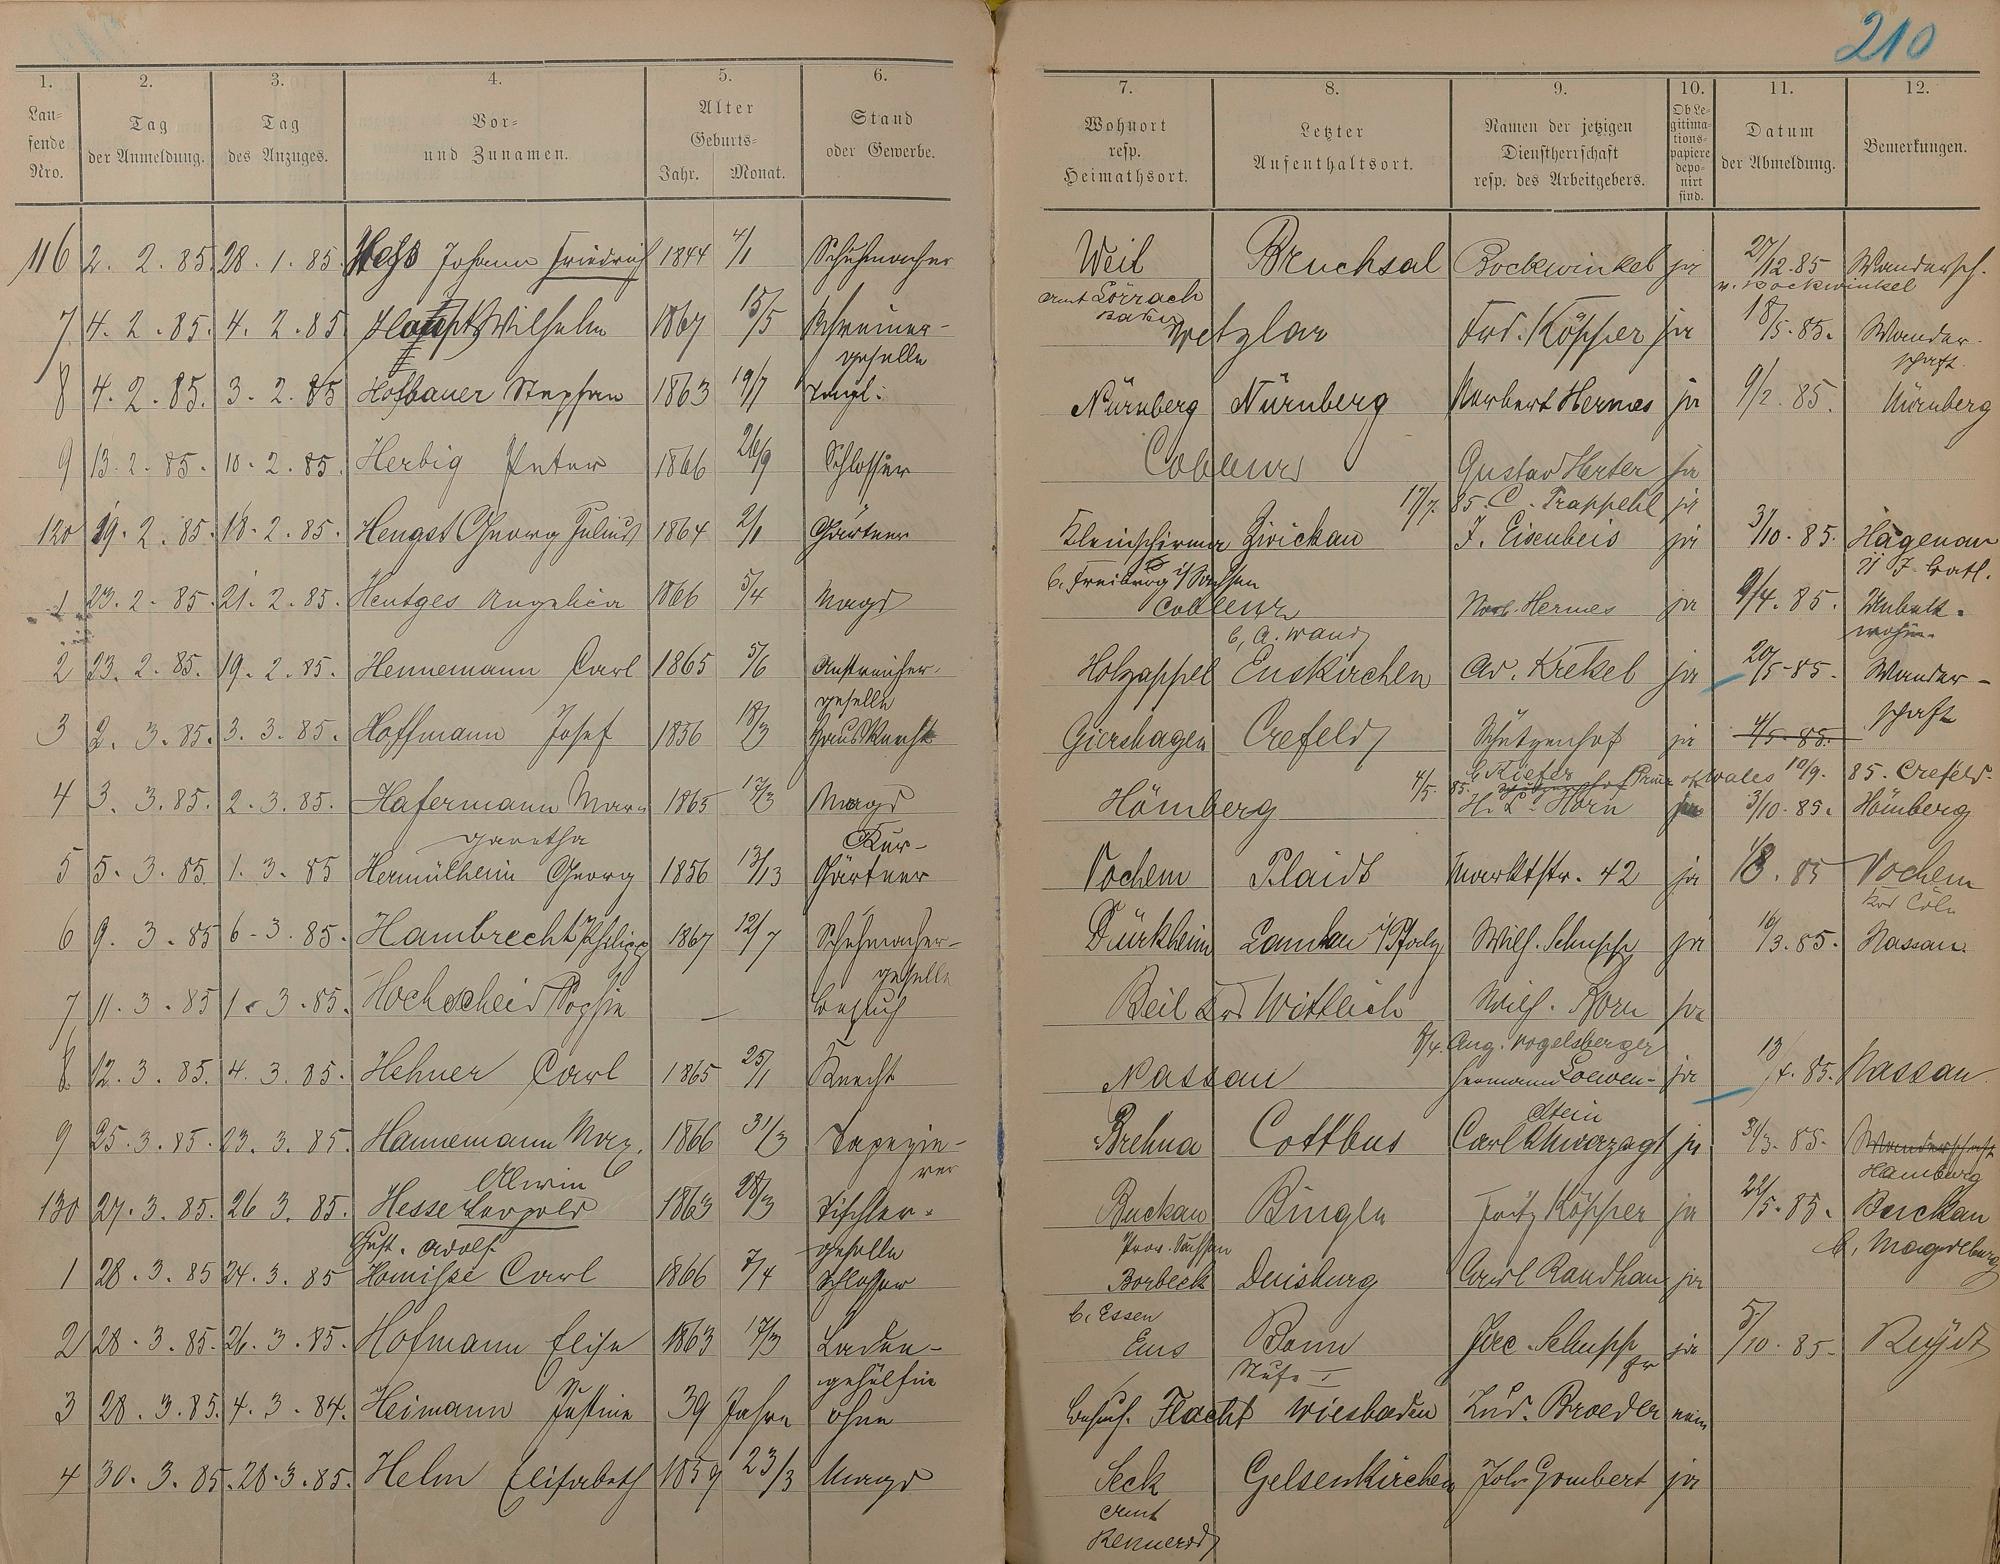 210
1. 2. 3. 4. 5. 6. 7. 8. 9. 10. 11. 12.
Lau-
fende
Nro.
Tag
der Anmeldung.
Tag
des Anzuges.
Vor-
und Zunamen.
Alter
Geburts-
Jahr. Monat.
Stand
oder Gewerbe.
Wohnort
resp.
Heimathsort.
Letzter
Aufenthaltsort.
Namen der jetzigen
Dienstherrschaft
resp. des Arbeitgebers.
Ob Le-
gitima-
tions-
papiere
depo-
nirt
sind.
Datum
der Abmeldung.
Bemerkungen.
116 2. 2. 85. 28. 1. 85. Hess Johann Friedrich 1844 4/1 Schuhmacher Weil Bruchsal Bockwinkel ja 27/12. 85 Wandersch.
Amt Lörrach Baden v. Bockwinkel
7 4. 2. 85. 4. 2. 85 Haupt Wilhelm 1867 15/5 Schreiner- Wetzlar Ferd. Köpper ja 18/5. 85. Wander-
geselle schaft.
8 4. 2. 85. 3. 2. 85 Hofbauer Stephan 1863 19/7 Nürnberg Nürnberg Norbert Hermes ja 9/2. 85. Nürnberg
9 13. 2. 85. 10. 2. 85. Herbig Peter 1866 26/9 Schlosser Coblenz Gustav Herter ja
17/7. 85. C. Trappehl ja
120 19. 2. 85. 18. 2. 85. Hengst Georg Julius 1864 2/1 Gärtner Kleinschirma Zwickau J. Eisenbeis ja 3/10. 85. Hagenau
b. Freiberg i/Sachsen
1 23. 2. 85. 21. 2. 85. Hentges Angelica 1866 5/4 Magd Coblenz Norb. Hermes ja 9/4. 85. Unbek.
b. A. Wand wohin.
2 23. 2. 85. 19. 2. 85. Hennemann Carl 1865 5/6 Anstreicher- Holzappel Euskirchen Ad. Krekel ja 20/5. 85. Wander-
geselle schaft
3 2. 3. 85. 3. 3. 85. Hoffmann Josef 1856 18/3 Hausknecht Giershagen Crefeld Schützenhof ja 4/5. 85.
4/5. 85. b. Kiefer Prinz of Wales 10/9. 85. Crefeld.
4 3. 3. 85. 2. 3. 85. Hafermann Mar- 1865 Magd Hömberg H. L. Horn ja 3/10. 85. Hömberg
garetha Kur-
5 5. 3. 85. 1. 3. 85 Hermülheim Georg 1856 13/13 Gärtner Vochem Plaidt Marktstr. 42 ja 1/3. 85 Vochem
Krs Cöln
6 9. 3. 85 6. 3. 85. Hambrecht Philipp 1867 12/7 Schuhmacher- Dürkheim Landau i/Pfalz Wilh. Schupp ja 16/3. 85. Nassau.
geselle
7 11. 3. 85 1. 3. 85. Hochscheid Sophie — Besuch Beil Krs Wittlich Wilh. Korn ja
8/4. Aug. Vogelsberger
8 12. 3. 85. 4. 3. 85. Hehner Carl 1865 25/1 Knecht Nassau Hermann Loewen- ja 13/4. 85. Nassau
stein
9 25. 3. 85. 23. 3. 85. Hannemann Max 1866 31/3 Tapezie- Brehna Cottbus Carl Schwarzagt ja 31/3. 85. Wanderschaft
Alwin rer Hamburg
130 27. 3. 85. 26 3. 85. Hesse Leopold 1863 28/3 Tischler- Buckau Bingen Fritz Köpper ja 21/5. 85. Buckau
Gust. Adolf. geselle Prov. Sachsen b. Magdeburg
1 28. 3. 85 24. 3. 85 Carl 1866 7/4 Schlosser Borbeck Duisburg Carl Randhan ja
b. Essen
2 28. 3. 85. 26. 3. 85. Hofmann Elise 1863 17/3 Laden- Ems Bonn Jac. Schupp ja 5/10. 85.
gehülfin
3 28. 3. 85. 4. 3. 84. Heimann Justine 39 Jahre ohne Besuch. Flacht Wiesbaden Lud. Broeder nein
4 30. 3. 85. 28. 3. 85. Helm Elisabeth 1859 23/3 Magd Seck Gelsenkirchen Joh. Gombert ja
Amt
Rennerod